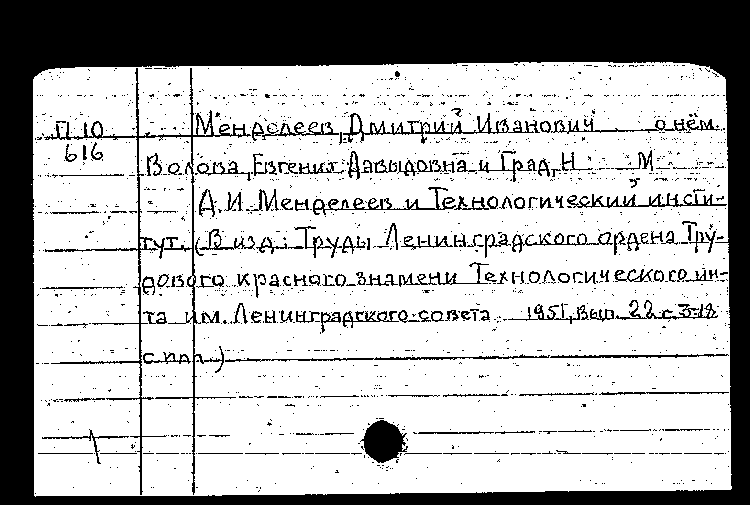 П 10 Менделеев, Дмитрий Иванович о нём.
616
Волова, Евгения Давыдовна и Град, Н М
Д. И. Менделеев и Технологический инсти-
тут. (В изд.: Труды Ленинградского ордена Тру-
дового красного знамени Технологического ин-
та им. Ленинградского совета 1951, Вып. 22 с 3-18
с илл.)